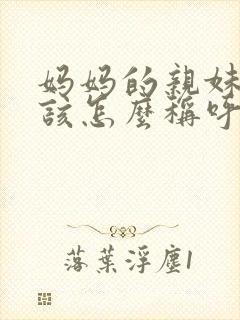 妈妈的親妹
該怎麼稱呼
落葉浮塵1